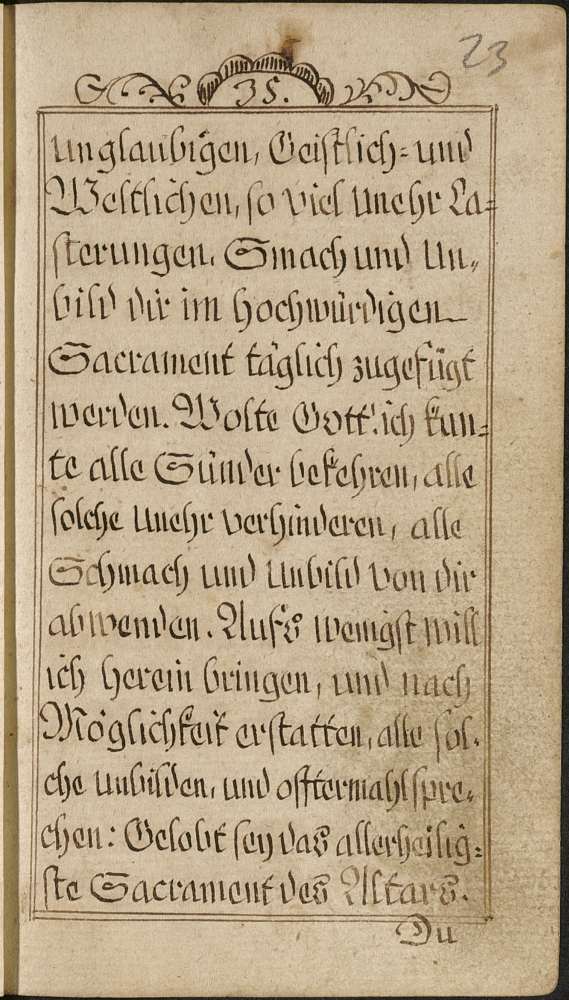 23
35.
unglaubigen, Geistlich- und
Weltlichen, so viel Unehr La-
sterungen, Smach und Un-
bild dir im hochwürdigen
Sacrament täglich zugefügt
werden. Wolte Gott! ich kun-
te alle Sünder bekehren, alle
solche Unehr verhinderen, alle
Schmach und Unbild von dir
abwenden. Aufs wenigst will
ich herein bringen, und nach
Möglichkeit erstatten, alle sol-
che unbilden, und offtermahl spre-
chen: Gelobt sey das allerheilig-
ste Sacrament des Altars.
Du